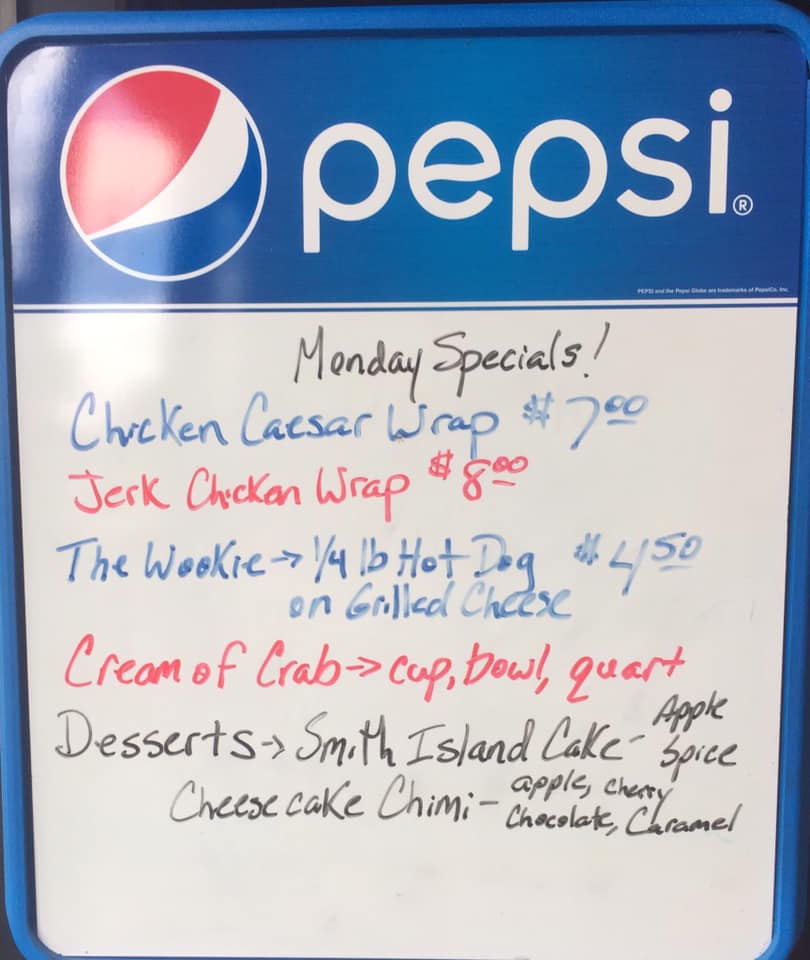 pepsi®
PEPSI and the Pepsi Globe are trademarks of PepsiCo, Inc.
Monday Specials!
Chicken Caesar Wrap $7.00
Jerk Chicken Wrap $8.00
The Wookie → 1/4 lb Hot Dog $4.50
on Grilled Cheese
Cream of Crab → cup, bowl, quart
Desserts → Smith Island Cake - Apple
Spice
Cheesecake Chimi - apple, cherry
Chocolate, Caramel